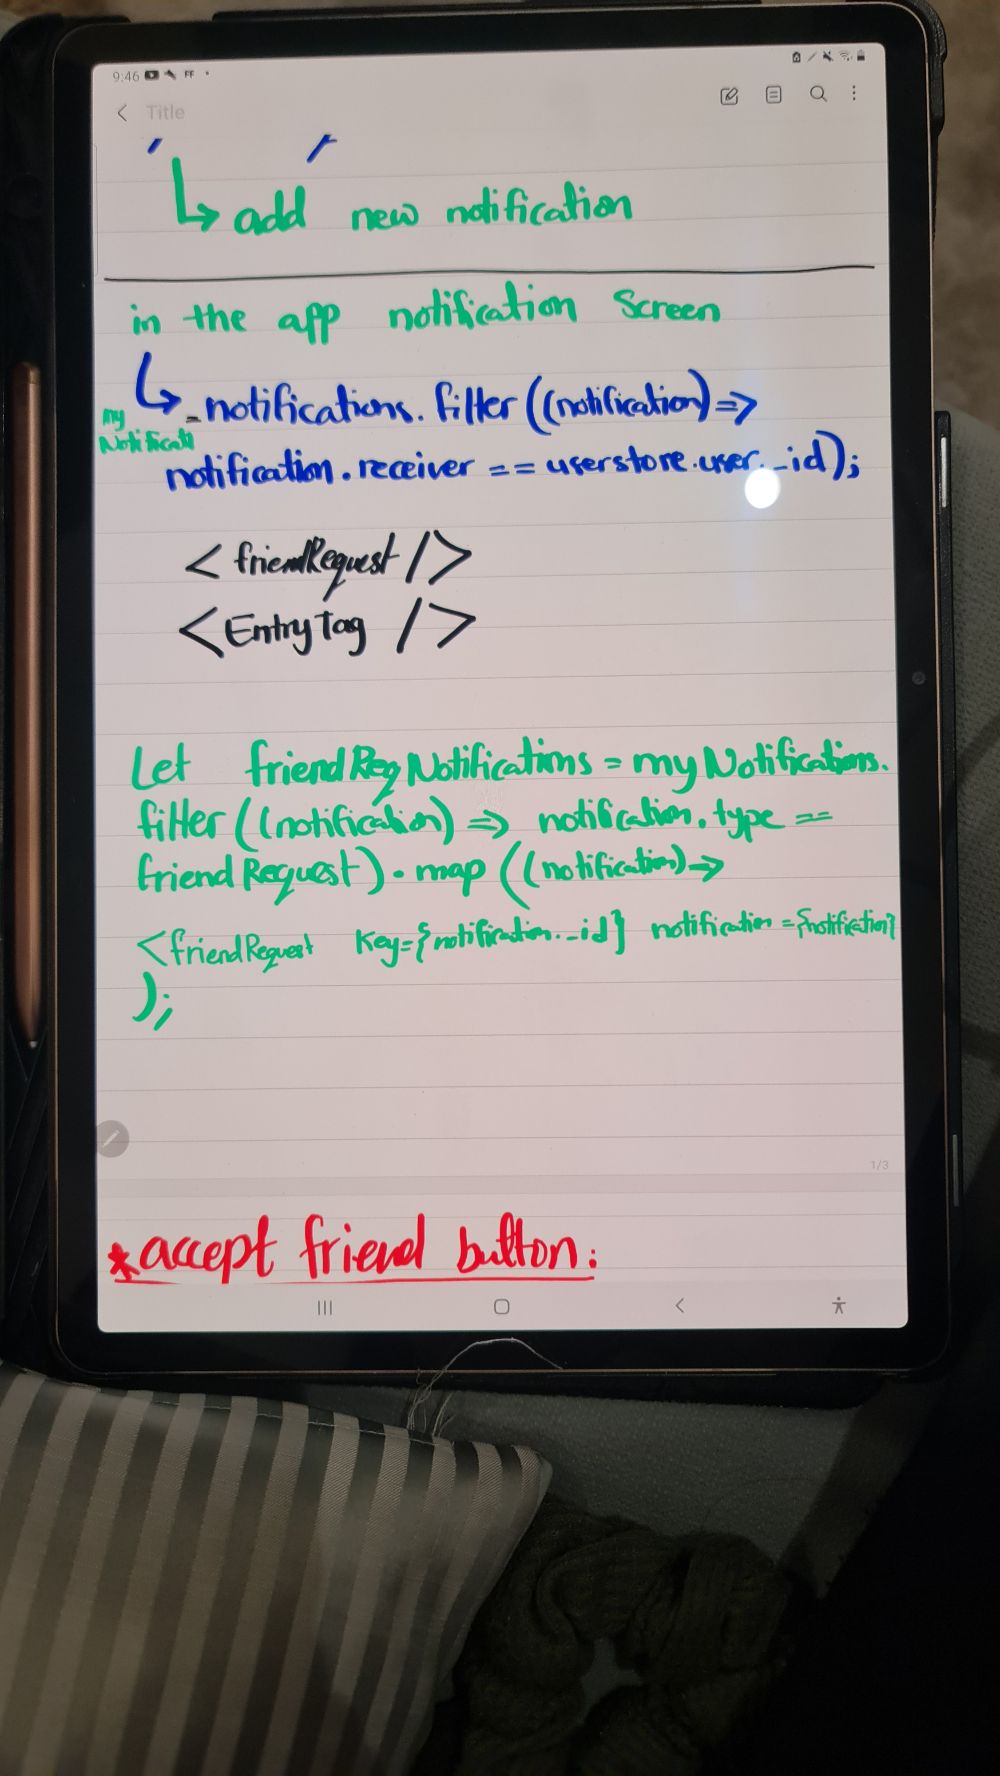 9:46
Title
add new notification
in the app notification Screen
my Notificati = notifications.filter((notification)=>
notification.receiver == userstore.user._id);
<friendRequest/>
<EntryTag />
Let friendReqNotifications = myNotifications.
filter((notification) => notification.type ==
friendRequest).map((notification)=>
<friendRequest Key={notification._id} notification={notification}
);
1/3
*accept friend button: